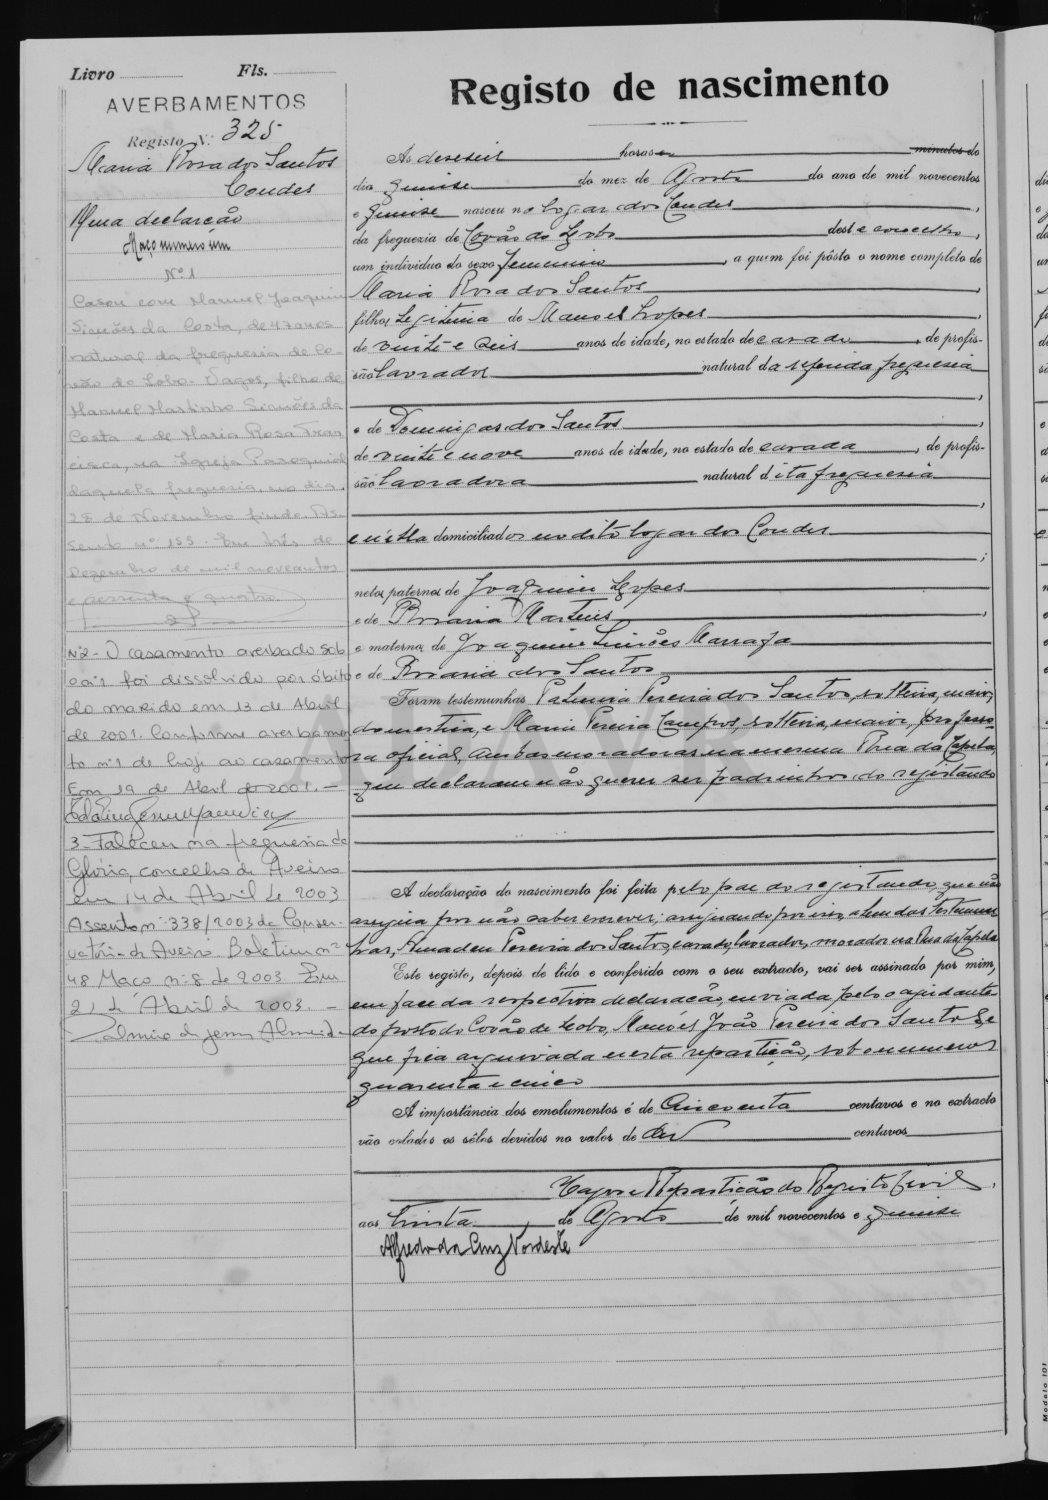 Livro Fls.
AVERBAMENTOS
Registo N.º 325
Maria Rosa dos Santos
Condes
Uma declaração
Maço numero um
Nº 1
Casou com Manuel Joaquim
Simões da Costa, de 47 anos
natural da freguesia de Co-
vão do Lobo - Vagos, filho de
Manuel Martinho Simões da
Costa e de Maria Rosa Fran
cisca, na Igreja Paroquial
daquela freguesia, no dia
28 de Novembro findo. As-
sento nº 199. Em três de
Dezembro de mil novecentos
e sessenta e quatro
Nº2 - O casamento averbado sob
o nº1 foi dissolvido por óbito
do marido em 13 de Abril
de 2001. Conforme averbamen
to nº1 de hoje ao casamento
Em 19 de Abril de 2001. -
3 - Faleceu na freguesia da
Glória, concelho de Aveiro
em 14 de Abril de 2003
Assento nº 338/2003 da Conser-
vatória de Aveiro. Boletim nº
48 Maço nº 8 de 2003. Em
21 de Abril de 2003. -
Registo de nascimento
As deseseis horas e minutos do
dia quinse do mez de Agosto do ano de mil novecentos
e quinse nasceu no logar dos Condes,
da freguezia de Covão do Lobo deste concelho,
um individuo do sexo femenino, a quem foi pôsto o nome completo de
Maria Rosa dos Santos,
filha legitima de Manoel Lopes,
de vinte e seis anos de idade, no estado de casado, de profis-
são lavrador natural da referida freguesia
,
e de Domingas dos Santos,
de vinte e nove anos de idade, no estado de casada, de profis-
são lavradora natural dita freguesia
,
e n'ella domiciliados no dito logar dos Condes
;
neta paterna de Joaquim Lopes
e de Rosaria Martins,
e materna de Joaquim Simões Marrafa
e de Rosaria dos Santos
Foram testemunhas Palmira Pereira dos Santos, solteira, maior,
domestica, e Maria Pereira Campos, solteira, maior, professo-
ra oficial, ambas moradoras na mesma Rua da Capela,
que declaram não querer ser padrinhos do registando
A declaração do nascimento foi feita pelo pae do registando, que não
assigna por não saber escrever; assignando por isso, alem das testemu-
has, Amadeu Pereira dos Santos, casado, lavrador, morador na Rua da Capela
Este registo, depois de lido e conferido com o seu extracto, vai ser assinado por mim,
em face da respectiva declaração, enviada pelo o ajudante
do posto do Covão do Lobo, Manoel João Pereira dos Santos e
que fica arquivada nesta repartição, sob o numero
quarenta e cinco
A importância dos emolumentos é de Cincoenta centavos e no extracto
vão colados os sêlos devidos no valor de dez centavos
Vagos e Repartição do Registo Civil,
aos trinta de Agosto de mil novecentos e quinse
Alfredo da Cruz Nordeste
Modelo 101